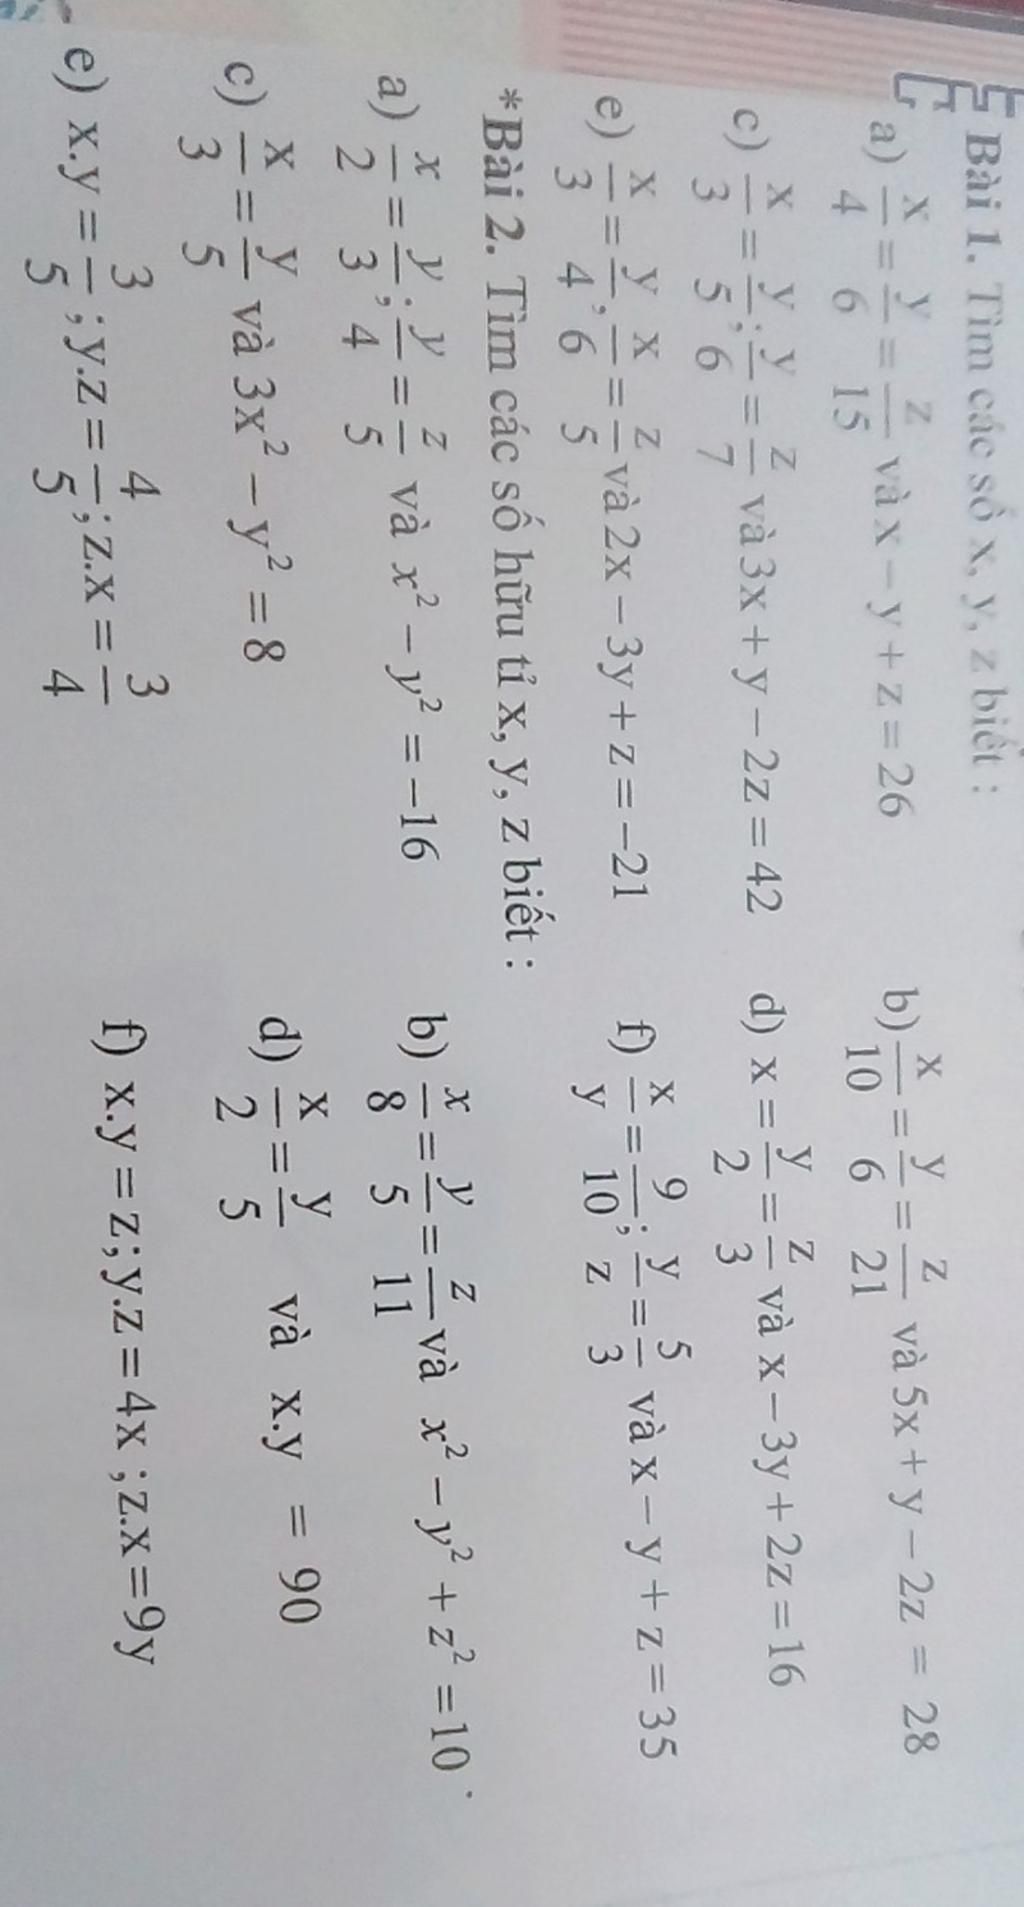 Bài 1. Tìm các số x, y, z biết :
a) x/4 = y/6 = z/15 và x − y + z = 26 b) x/10 = y/6 = z/21 và 5x + y − 2z = 28
c) x/3 = y/5; y/6 = z/7 và 3x + y − 2z = 42 d) x = y/2 = z/3 và x − 3y + 2z = 16
e) x/3 = y/4, x/6 = z/5 và 2x − 3y + z = −21 f) x/y = 9/10; y/z = 5/3 và x − y + z = 35
*Bài 2. Tìm các số hữu tỉ x, y, z biết :
a) x/2 = y/3; y/4 = z/5 và x² − y² = −16 b) x/8 = y/5 = z/11 và x² − y² + z² = 10.
c) x/3 = y/5 và 3x² − y² = 8 d) x/2 = y/5 và x.y = 90
e) x.y = 3/5; y.z = 4/5; z.x = 3/4 f) x.y = z; y.z = 4x ; z.x = 9y